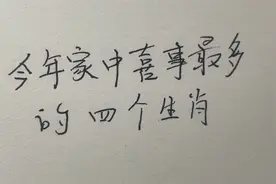 今年家中喜事最多
的四个生肖